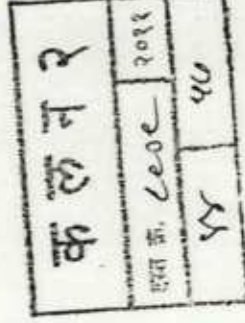 क ल न २
दस्त क्र. ८९०९ २०२२